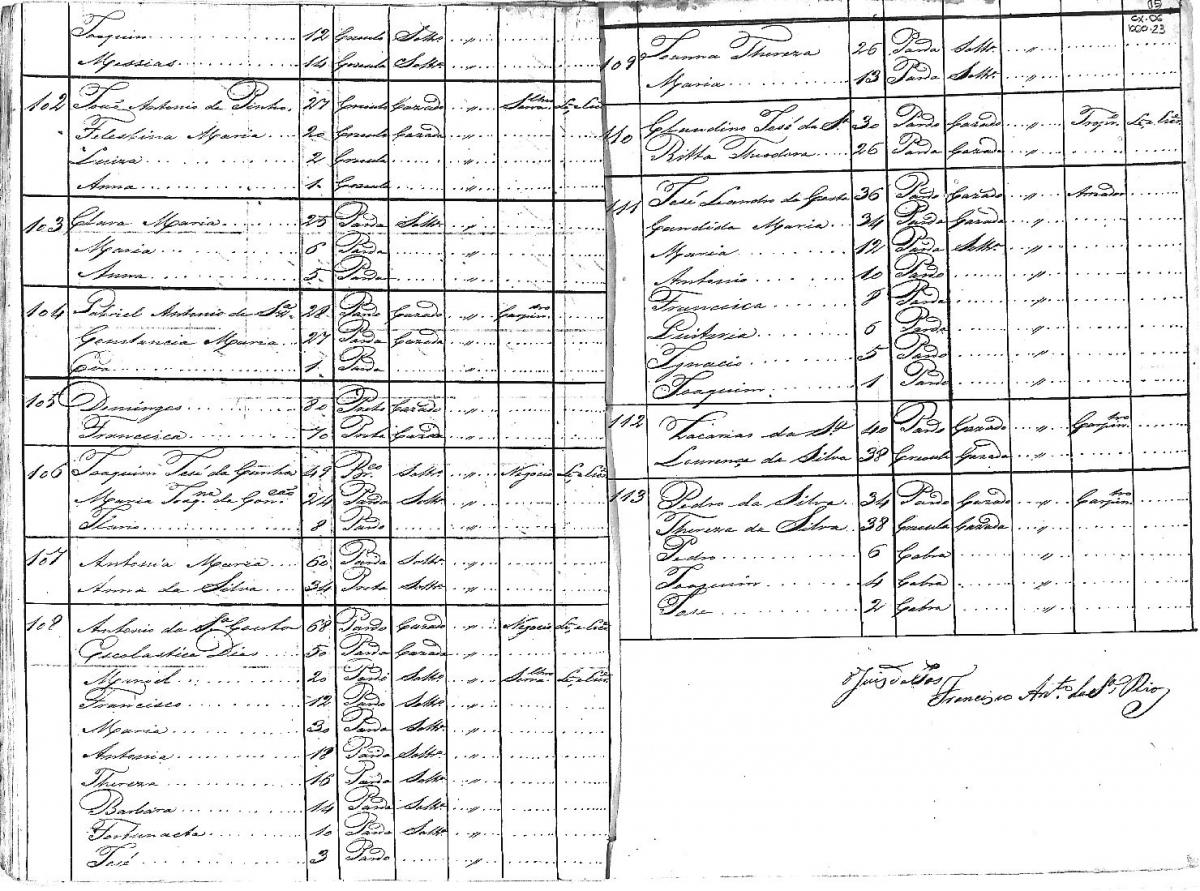 Joaquim 12 Creoulo Soltro "
Messias 14 Creoulo Soltro "
102 José Antonio de Penha 27 Creoulo Cazado " Ler, e Escr
Felestina Maria 20 Creoula Cazada "
Luiza 2 Creoula "
Anna 1 Creoula "
103 Clara Maria 25 Parda Soltra "
Maria 6 Parda "
Anna 5 Parda "
104 Gabriel Antonio de Sza 28 Pardo Cazado " Carpintro
Constancia Maria 27 Parda Cazada "
Eva 1 Parda "
105 Domingos 80 Preto Cazado "
Francisca 70 Preta Cazada "
106 Joaquim José da Cunha 49 Bco Soltro " Negocio
Maria da Conção 24 Parda Soltra "
8 Pardo "
107 Antonia Maria 60 Parda Soltra "
Anna da Silva 34 Preta Soltra "
108 Antonio da Sa 68 Pardo Cazado " Negocio
Escolastica Dias 50 Parda Cazada "
Manoel 20 Pardo Soltro "
Francisco 12 Pardo Soltro "
Maria 30 Parda Soltra "
Antonia 18 Parda Soltra "
Thereza 16 Parda Soltra "
Barbara 14 Parda Soltra "
Fortunacta 10 Parda Soltra "
José 3 Pardo "
15
cx-06
DOC-23
109 Joanna Thereza 26 Parda Soltra "
Maria 13 Parda Soltra "
110 Claudino José da Sa 30 Pardo Cazado "
Ritta Theodora 26 Parda Cazada "
111 José Leandro da Costa 36 Pardo Cazado "
Candida Maria 34 Parda Cazada "
Maria 12 Parda Soltra "
Antonio 10 Pardo "
Francisca 8 Parda "
Quiteria 6 Parda "
Ignacio 5 Pardo "
Joaquim 1 Pardo "
112 Zacarias da Sa 40 Pardo Cazado " Carpintro
Lourença da Silva 38 Creoula Cazada "
113 Pedro da Silva 34 Pardo Cazado " Carpintro
Thereza da Silva 38 Creoula Cazada "
Pedro 6 Cabra "
Joaquim 4 Cabra "
José 2 Cabra "
O Juiz de Pas
Francisco Anto de Sa Rio